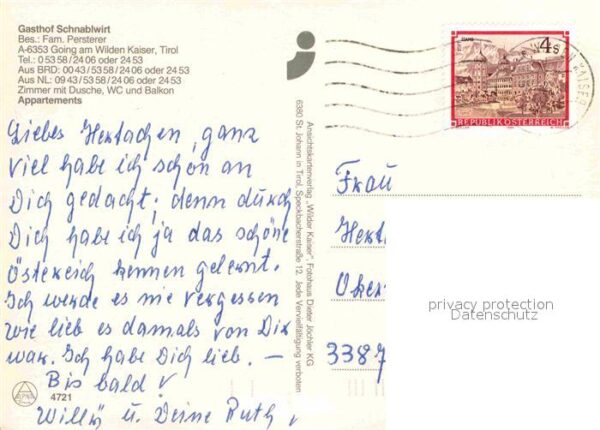 Gasthof Schnablwirt
Bes.: Fam. Persterer
A-6353 Going am Wilden Kaiser, Tirol
Tel.: 0 53 58 / 24 06 oder 24 53
Aus BRD: 00 43 / 53 58 / 24 06 oder 24 53
Aus NL: 09 43 / 53 58 / 24 06 oder 24 53
Zimmer mit Dusche, WC und Balkon
Appartements
Liebes Hertachen, ganz
viel habe ich schon an
Dich gedacht; denn durch
Dich habe ich ja das schöne
Österreich kennen gelernt.
Ich werde es nie vergessen
wie lieb es damals von Dir
war. Ich habe Dich lieb. —
Bis bald!
Willy u. Deine Ruth
4721
Ansichtskartenverlag „Wilder Kaiser", Fotohaus Dieter Jöchler KG
6380 St. Johann in Tirol, Speckbacherstraße 12. Jede Vervielfältigung verboten
STIFT STAMS
4 S
REPUBLIK ÖSTERREICH
KAISER
Frau
Hert
Ober
3387
privacy protection
Datenschutz